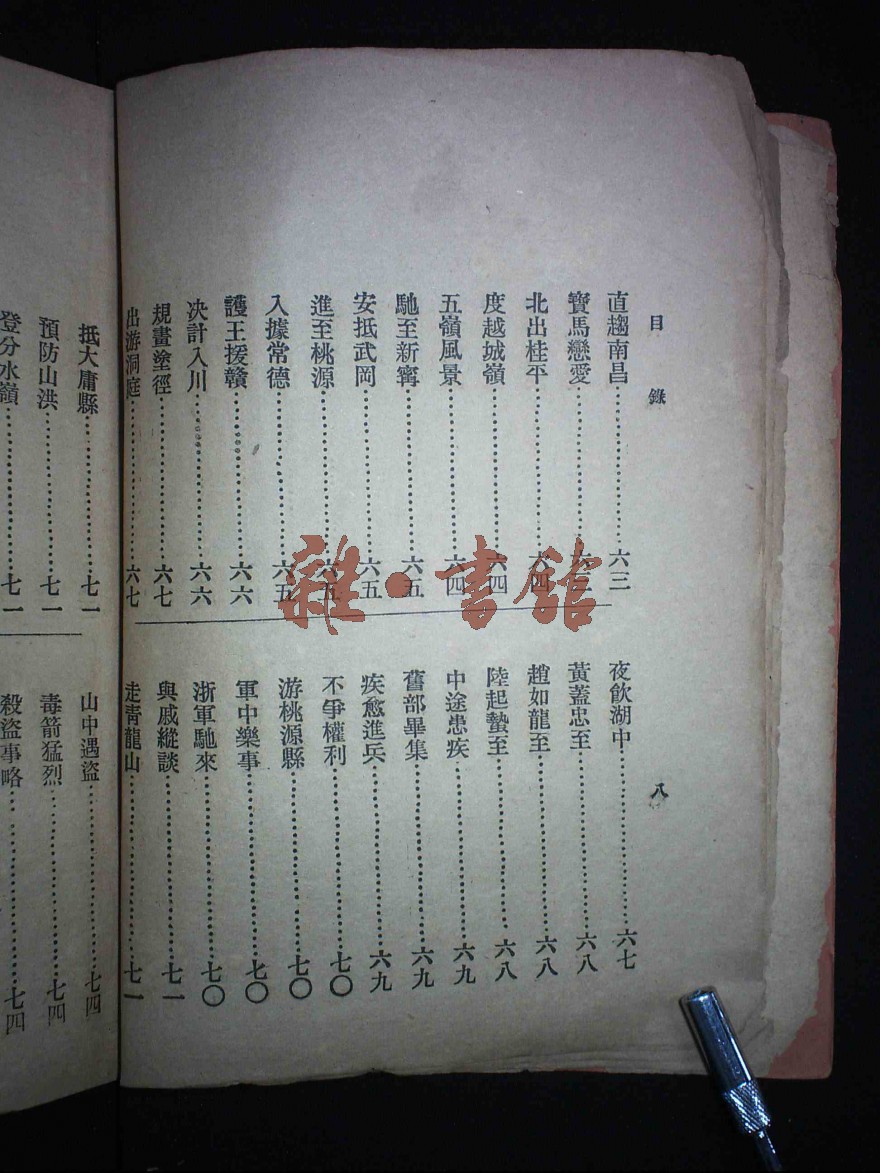 目錄 八
直趨南昌……六三
寶馬戀愛……六三
北出桂平……六四
度越城嶺……六四
五嶺風景……六四
馳至新寗……六五
安抵武岡……六五
進至桃源……六五
入據常德……六五
護王援贛……六六
决計入川……六六
規畫塗徑……六七
出游洞庭……六七
夜飲湖中……六七
黃蓋忠至……六八
趙如龍至……六八
陸起蟄至……六八
中途患疾……六九
舊部畢集……六九
疾愈進兵……六九
不爭權利……七〇
游桃源縣……七〇
軍中樂事……七〇
浙軍馳來……七〇
與戚縱談……七一
走青龍山……七一
抵大庸縣……七一
預防山洪……七一
登分水嶺……七一
山中遇盜……七四
毒箭猛烈……七四
殺盜事略……七四
雜·書館